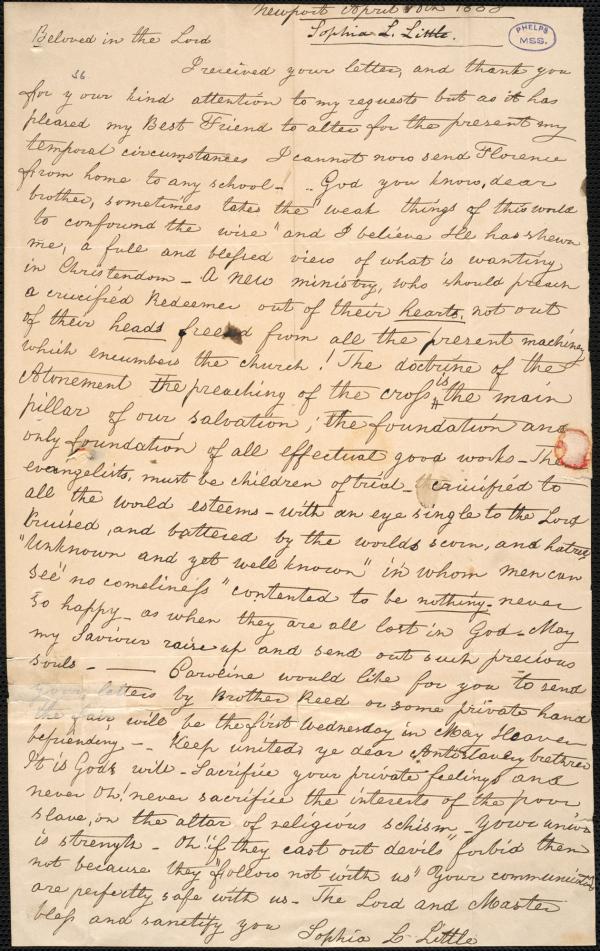 Newport April 10th 1838
Sophia L. Little.
PHELPS
MSS.
Beloved in the Lord
I received your letter, and thank you
36
for your kind attention to my requests but as it has
pleased my Best Friend to alter for the present my
temporal circumstances I cannot now send Florence
from home to any school - .. God you know, dear
brother, sometimes takes the "weak things of this world
to confound the wise" and I believe He has shewn
me, a full and blessed view of what is wanting
in Christendom - A new ministry, who should preach
a crucified Redeemer out of their hearts, not out
of their heads freed from all the present machinery
which encumbers the church! The doctrine of the
Atonement the preaching of the cross is the main
pillar of our salvation, the foundation and
only foundation of all effectual good works - The
evangelists, must be children of trial - crucified to
all the world esteems - with an eye single to the Lord
Bruised, and battered by the worlds scorn, and hatred
"Unknown and yet well known" in whom men can
see "no comeliness" contented to be nothing - never
so happy - as when they are all lost in God - May
my Saviour raise up and send out such precious
souls - — Caroline would like for you to send
your letters by Brother Reed or some private hand
The fair will be the first Wednesday in May Heaven
befriending - - Keep united, ye dear Antislavery brethren
It is Gods will - Sacrifice your private feelings and
never Oh! never sacrifice the interests of the poor
slave, on the altar of religious schism - Your union
is strength - Oh "if they cast out devils" forbid them
not because they "follow not with us" Your communications
are perfectly safe with us - The Lord and Master
bless and sanctify you Sophia L Little